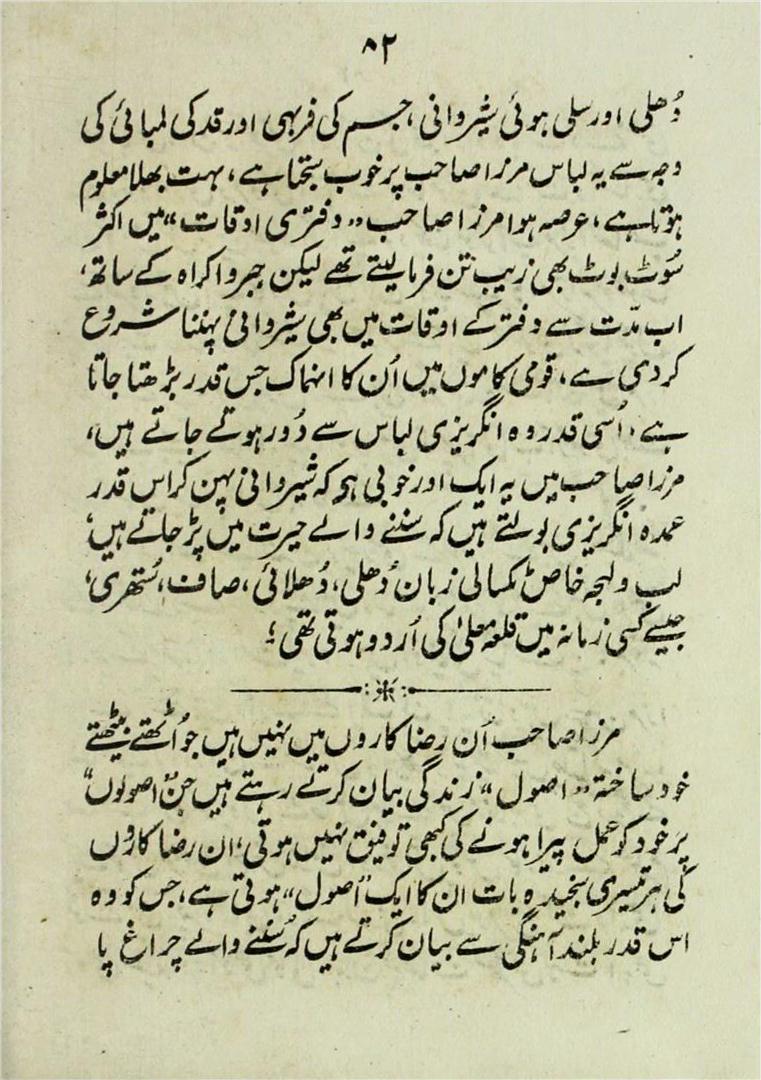 ۸۲
دُھلی اور سلی ہوئی شیروانی، جسم کی فربہی اور قد کی لمبائی کی
وجہ سے یہ لباس مرزا صاحب پر خوب سجتا ہے، بہت بھلا معلوم
ہوتا ہے، عرصہ ہوا مرزا صاحب "دفتری اوقات" میں اکثر
سُوٹ بوٹ بھی زیب تن فرما لیتے تھے لیکن جبر و اکراہ کے ساتھ،
اب مدّت سے دفتر کے اوقات میں بھی شیروانی پہننا شروع
کر دی ہے، قومی کاموں میں اُن کا انہماک جس قدر بڑھتا جاتا
ہے، اُسی قدر وہ انگریزی لباس سے دُور ہوتے جاتے ہیں،
مرزا صاحب میں یہ ایک اور خوبی ہے کہ شیروانی پہن کر اس قدر
عمدہ انگریزی بولتے ہیں کہ سننے والے حیرت میں پڑ جاتے ہیں،
لب و لہجہ خاص ٹکسالی زبان دُھلی، دُھلائی، صاف، سُتھری،
جیسے کسی زمانہ میں قلعہ معلیٰ کی اُردو ہوتی تھی؛
مرزا صاحب اُن رضا کاروں میں نہیں ہیں جو اُٹھتے بیٹھتے
خود ساختہ "اصول" زندگی بیان کرتے رہتے ہیں جن "اصولوں"
پر خود کو عمل پیرا ہونے کی کبھی توفیق نہیں ہوتی، ان رضا کاروں
کی ہر تیسری سنجیدہ بات ان کا ایک "اُصول" ہوتی ہے، جس کو وہ
اس قدر بلند آہنگی سے بیان کرتے ہیں کہ سُننے والے چراغ پا